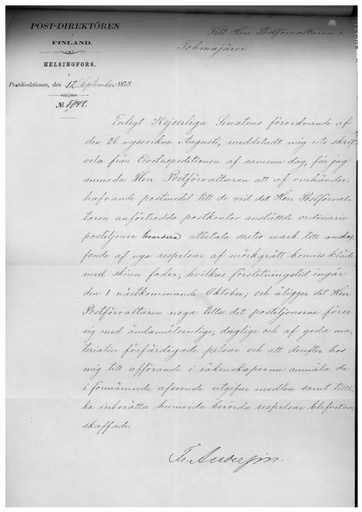 POST-DIREKTÖREN
I
FINLAND.
HELSINGFORS.
Postdirektionen, den 12 September 1873.
№ 5948.
Till Herr Postförvaltaren i
Tohmajärvi.
Enligt Kejserliga Senatens förordnande af
den 26 nyssvikne Augusti, meddeladt mig uti skrif-
velse från Civilexpeditionen af samma dag, får jag
anmoda Herr Postförvaltaren att af omhänder-
hafvande postmedel till de vid det Herr Postförval-
taren anförtrodda postkontor anstälde ordinarie
postiljoner hvardera utbetala sextio mark till anskaf-
fande af nya respelsar af mörkgrått kommis kläde
med skinn foder, hvilkas förslitningstid ingår
den 1 nästkommande Oktober; och åligger det Herr
Postförvaltaren noga tillse det postiljonerne förse
sig med ändamålsenlige, duglige och af goda ma-
terialier förfärdigade pelsar och att derefter hos
mig till afförande i räkenskaperna anmäla de
i förenämnde afseende utgifne medlen samt tilli-
ka inberätta huruvida berörda respelsar blifvit an-
skaffade.